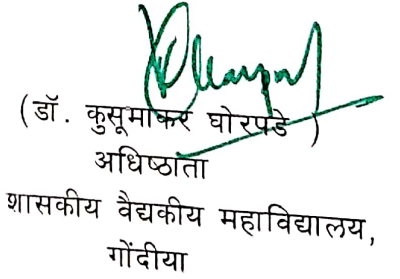 (डॉ. कुसूमाकर घोरपडे )
अधिष्ठाता
शासकीय वैद्यकीय महाविद्यालय,
गोंदीया